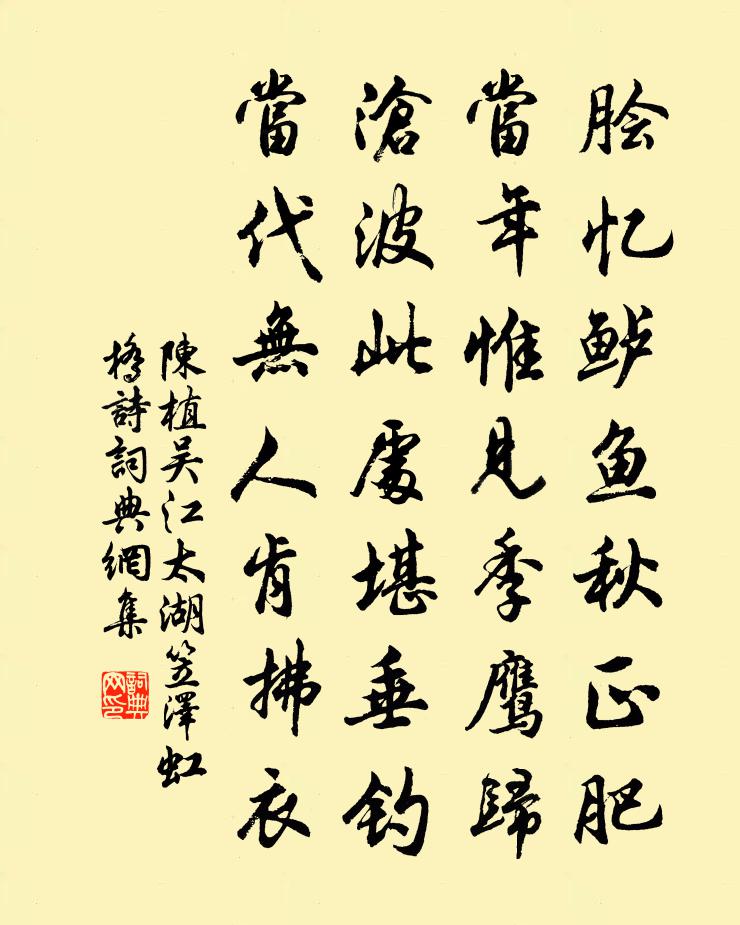 脍忆鲈鱼秋正肥
當年惟見季鹰歸
滄波此處堪垂钓
當代無人肯拂衣
陳植吴江太湖笠澤虹
橋詩詞典網集
詞典网印